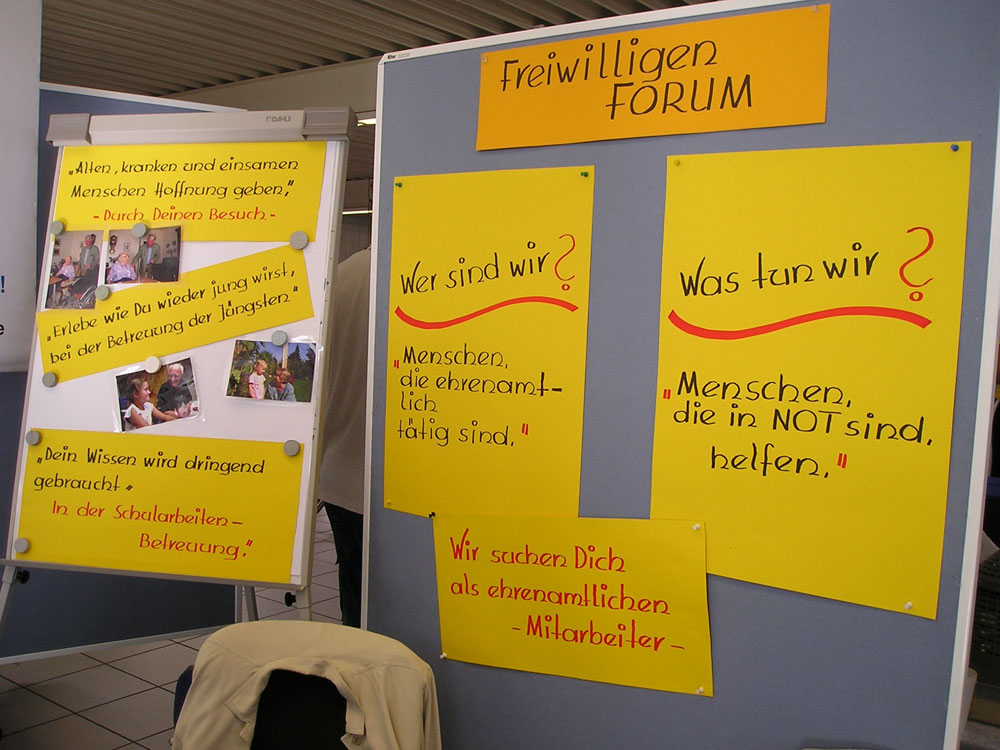 Freiwilligen
FORUM
Wer sind wir?
"Menschen,
die ehrenamt-
lich
tätig sind."
Was tun wir?
"Menschen,
die in NOT sind,
helfen."
Wir suchen Dich
als ehrenamtlichen
- Mitarbeiter -
DAHLE
„Alten, kranken und einsamen
Menschen Hoffnung geben,"
- Durch Deinen Besuch -
„Erlebe wie Du wieder jung wirst,
bei der Betreuung der Jüngsten"
„Dein Wissen wird dringend
gebraucht"
In der Schularbeiten-
Betreuung."
!
e